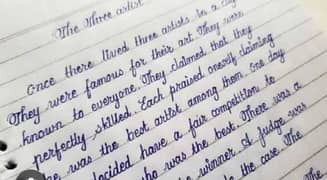 The three artist
Once there lived three artists in a
They were famous for their art. They were
known to everyone. They claimed that they
perfectly skilled. Each praised oneself claiming
he was the best artist among them. One day
decided have a fair competition to
he was the best. There was a
winner. A judge was
to the case. The
The